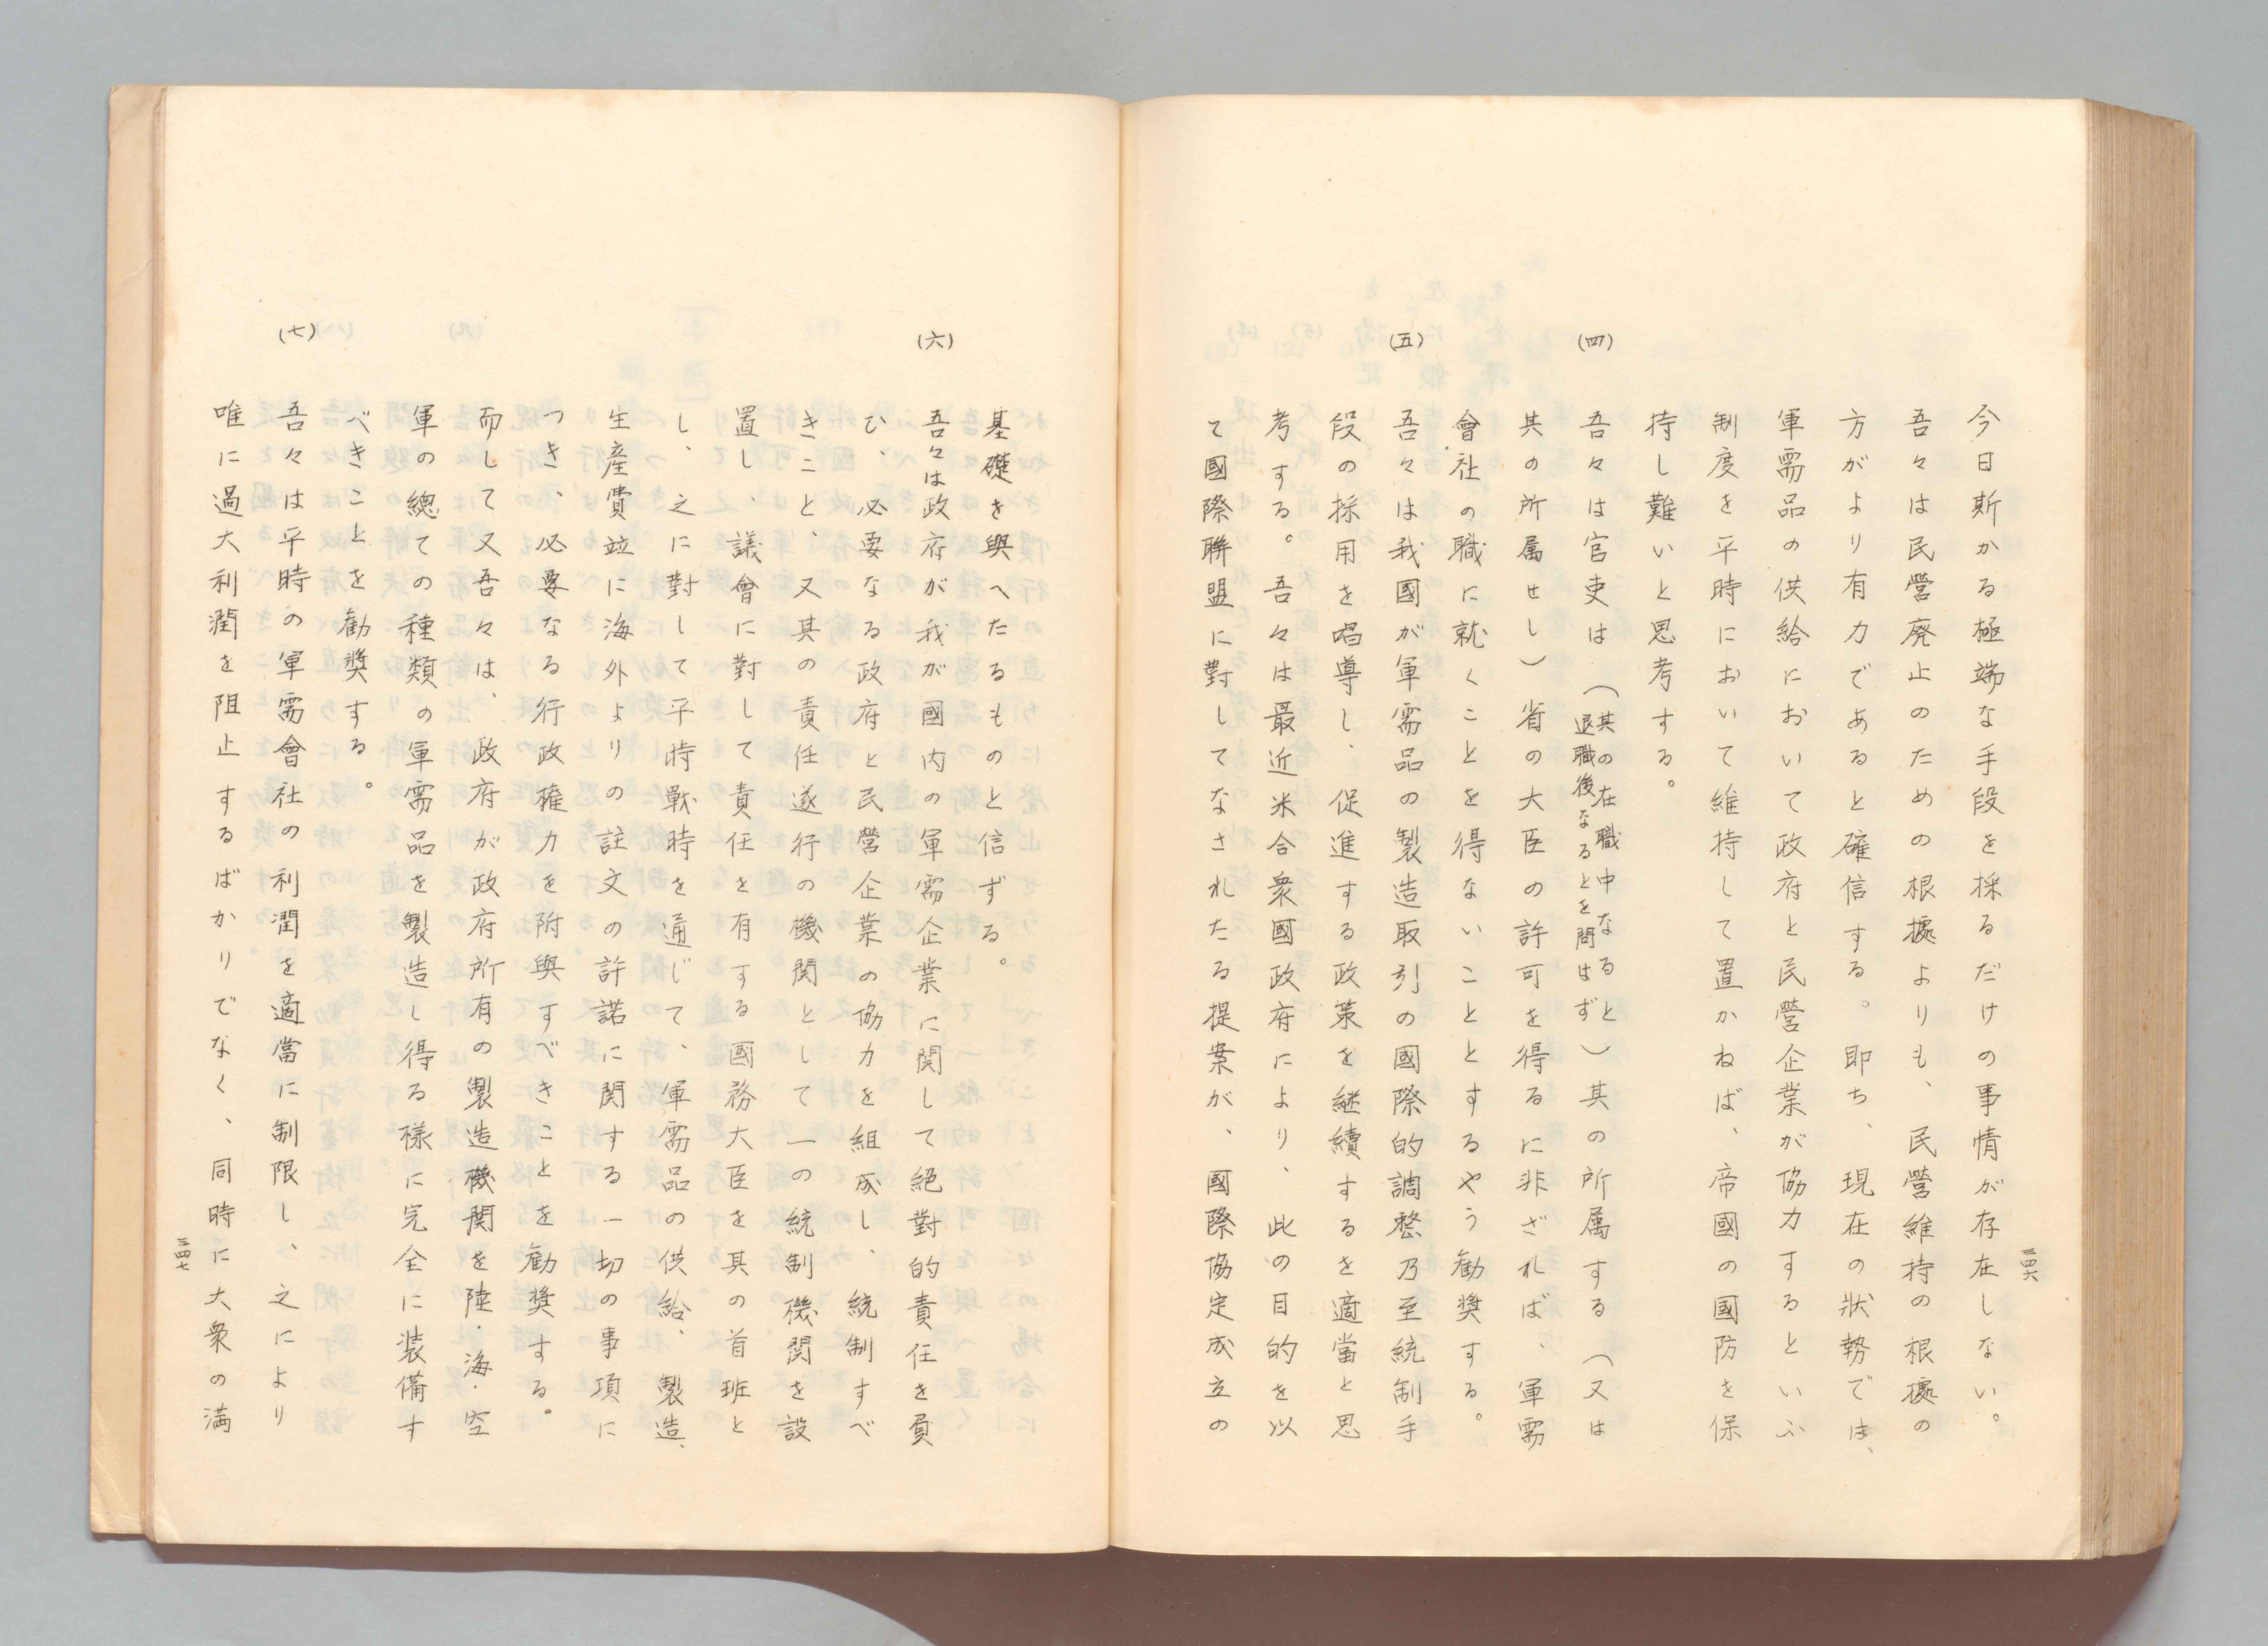 今日斯かる極端な手段を採るだけの事情が存在しない。
吾々は民營廃止のための根據よりも、民營維持の根據の
方がより有力であると確信する。即ち、現在の狀勢では、
軍需品の供給において政府と民營企業が協力するといふ
制度を平時において維持して置かねば、帝國の國防を保
持し難いと思考する。
(四)
吾々は官吏は(其の在職中なると退職後なるとを問はず)其の所属する(又は
其の所属せし)省の大臣の許可を得るに非ざれば、軍需
會社の職に就くことを得ないこととするやう勧奨する。
(五)
吾々は我國が軍需品の製造取引の國際的調整乃至統制手
段の採用を唱導し、促進する政策を継續するを適當と思
考する。吾々は最近米合衆國政府により、此の目的を以
て國際聯盟に對してなされたる提案が、國際協定成立の
三四六
基礎を與へたるものと信ずる。
(六)
吾々は政府が我が國内の軍需企業に関して絕對的責任を負
ひ、必要なる政府と民營企業の協力を組成し、統制すべ
きこと、又其の責任遂行の機関として一の統制機関を設
置し、議會に對して責任を有する國務大臣を其の首班と
し、之に對して平時戰時を通じて、軍需品の供給、製造、
生産費竝に海外よりの註文の許諾に関する一切の事項に
つき、必要なる行政権力を附與すべきことを勧奨する。
而して又吾々は、政府が政府所有の製造機関を陸・海・空
軍の總ての種類の軍需品を製造し得る樣に完全に装備す
べきことを勧奨する。
(七)
吾々は平時の軍需會社の利潤を適當に制限し、之により
唯に過大利潤を阻止するばかりでなく、同時に大衆の満
三四七